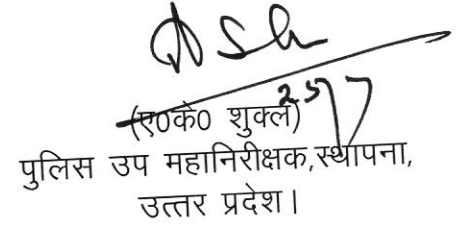 25/7
(ए0के0 शुक्ल)
पुलिस उप महानिरीक्षक,स्थापना,
उत्तर प्रदेश।